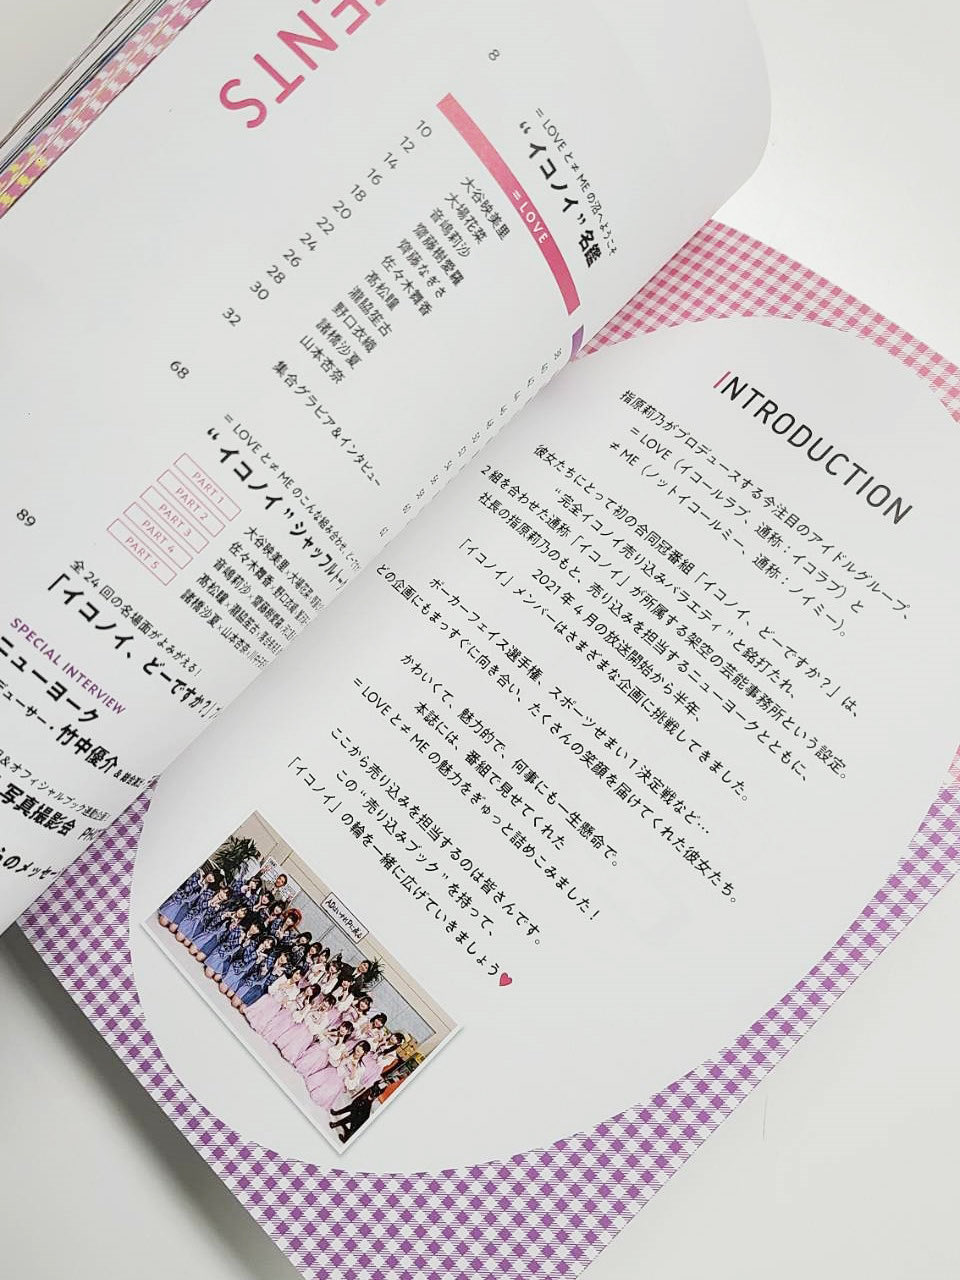 ENTS
8
= LOVE と ≠ ME の沼へようこそ
“イコノイ” 名鑑
= LOVE
10 大谷映美里
12 大場花菜
14 音嶋莉沙
16 齋藤樹愛羅
18 齋藤なぎさ
20 佐々木舞香
22 髙松瞳
24 瀧脇笙古
26 野口衣織
28 諸橋沙夏
30 山本杏奈
32 集合グラビア&インタビュー
68
= LOVE と ≠ ME のこんな組み合わせ、
“イコノイ” シャッフルト
PART 1 大谷映美里×大場花菜
PART 2 佐々木舞香・野口衣織
PART 3 音嶋莉沙×齋藤樹愛羅
PART 4 髙松瞳×瀧脇笙古
PART 5 諸橋沙夏×山本杏奈
89
全 24 回の名場面がよみがえる!
「イコノイ、どーですか?」
SPECIAL INTERVIEW
ニューヨーク
デューサー・竹中優介
&オフィシャルブック
写真撮影会
らのメッセ
INTRODUCTION
指原莉乃がプロデュースする今注目のアイドルグループ、
= LOVE(イコールラブ、通称:イコラブ)と
≠ ME(ノットイコールミー、通称:ノイミー)。
彼女たちにとって初の合同冠番組「イコノイ、どーですか?」は、
“完全イコノイ売り込みバラエティ” と銘打たれ、
2 組を合わせた通称「イコノイ」が所属する架空の芸能事務所という設定。
社長の指原莉乃のもと、売り込みを担当するニューヨークとともに、
2021 年 4 月の放送開始から半年、
「イコノイ」メンバーはさまざまな企画に挑戦してきました。
ポーカーフェイス選手権、スポーツせまい 1 決定戦など…
どの企画にもまっすぐに向き合い、たくさんの笑顔を届けてくれた彼女たち。
かわいくて、魅力的で、何事にも一生懸命で。
本誌には、番組で見せてくれた
= LOVE と ≠ ME の魅力をぎゅっと詰めこみました!
ここから売り込みを担当するのは皆さんです。
この “売り込みブック” を持って、
「イコノイ」の輪を一緒に広げていきましょう♥